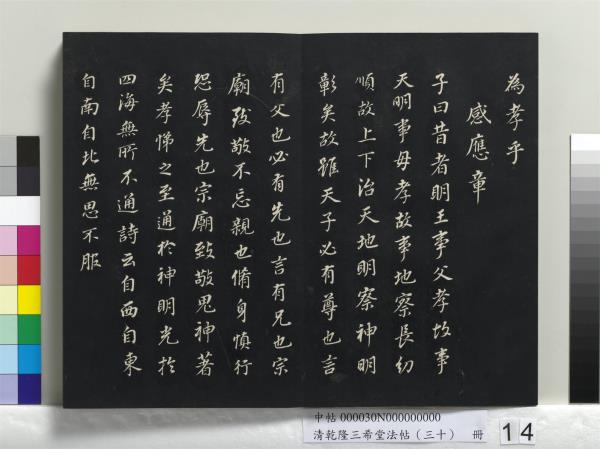 為孝乎
感應章
子曰昔者明王事父孝故事
天明事母孝故事地察長幼
順故上下治天地明察神明
彰矣故雖天子必有尊也言
有父也必有先也言有兄也宗
廟致敬不忘親也脩身慎行
恐辱先也宗廟致敬鬼神著
矣孝悌之至通於神明光於
四海無所不通詩云自西自東
自南自北無思不服
中帖 000030N000000000
清乾隆三希堂法帖（三十） 冊 14